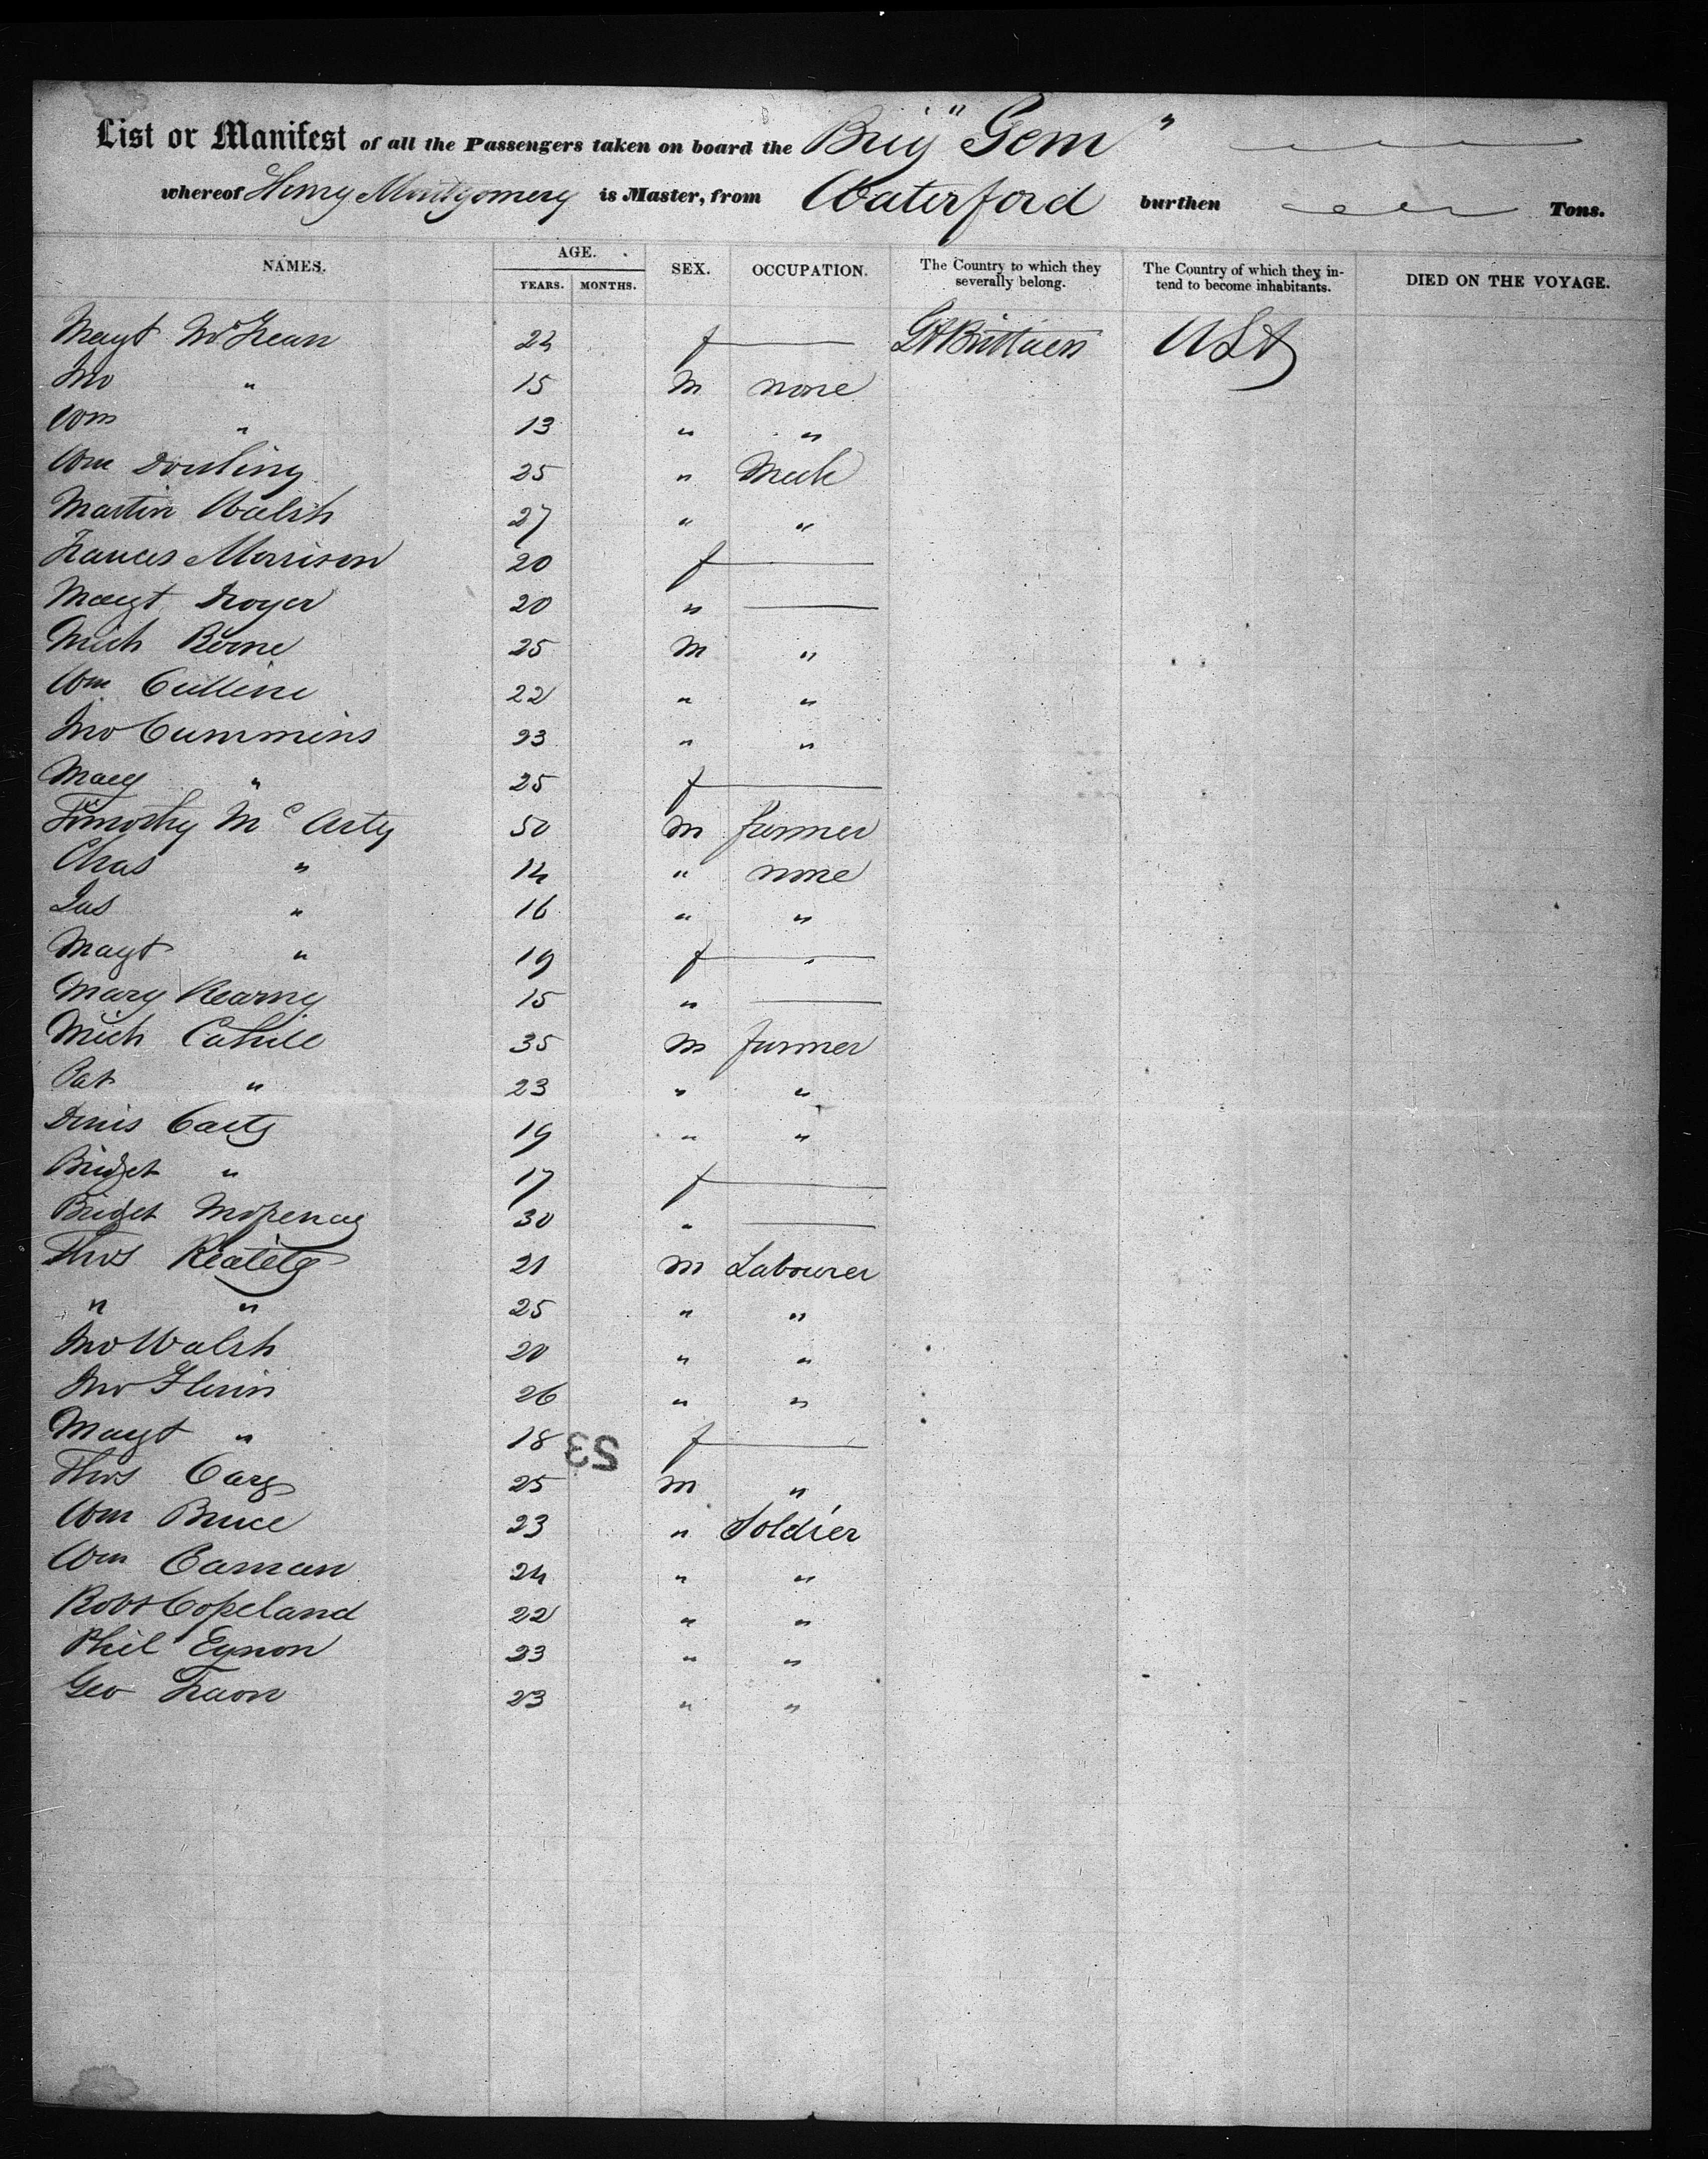 List or Manifest of all the Passengers taken on board the Brig "Gem"
whereof Henry Montgomery is Master, from Waterford burthen Tons.
NAMES. AGE. YEARS. MONTHS. SEX. OCCUPATION. The Country to which they severally belong. The Country of which they intend to become inhabitants. DIED ON THE VOYAGE.
Magt 24 f Gt Brittain USA
Jno " 15 M none
Wm " 13 " "
Wm Dowling 25 " Mech
Martin Walsh 27 " "
Frances Morrison 20 f
Magt 20 "
Mich Berne 25 M "
Wm Cullene 22 " "
Jno Cummins 23 " "
Mary " 25 f
Timothy McCarty 50 M farmer
Chas " 14 " none
Jas " 16 " "
Magt " 19 f
Mary Kearny 15 "
Mich Cahill 35 M farmer
Pat " 23 " "
Denis Carty 19 " "
Bridget " 17 f
Bridget 30 "
Thos 21 M Labourer
" " 25 " "
Jno Walsh 20 " "
Jno 26 " "
Magt " 18 f
23
Thos Cary 25 M "
Wm Bruce 23 " Soldier
Wm 24 " "
Robt Copeland 22 " "
Phil Eynon 23 " "
Geo 23 " "